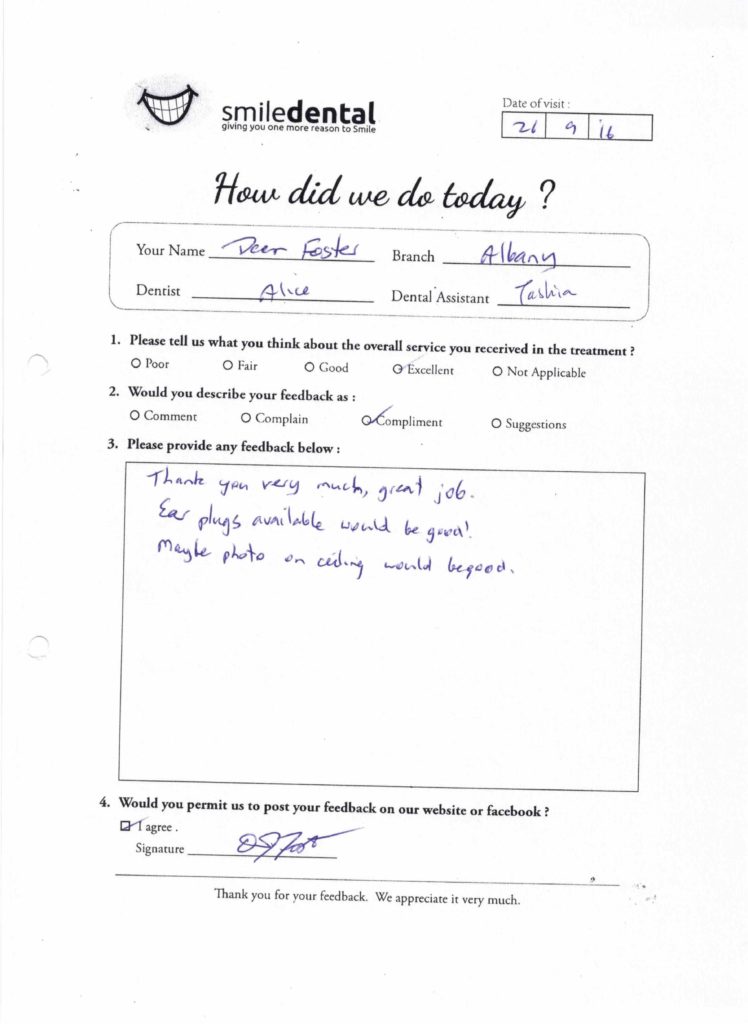 smiledental
giving you one more reason to Smile
Date of visit :
9 16
How did we do today ?
Your Name Foster Branch Albany
Dentist Alice Dental Assistant
1. Please tell us what you think about the overall service you recerived in the treatment ?
Poor Fair Good Excellent Not Applicable
2. Would you describe your feedback as :
Comment Complain Compliment Suggestions
3. Please provide any feedback below :
Thank you very much, great job.
Ear plugs available would be good!
Maybe photo on ceiling would be good.
4. Would you permit us to post your feedback on our website or facebook ?
I agree .
Signature
Thank you for your feedback. We appreciate it very much.